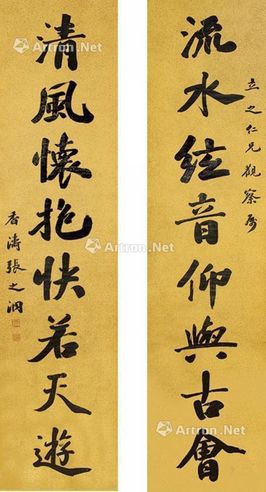 立之仁兄觀察屬
流水絃音仰與古會
清風懷抱快若天遊
香濤張之洞
Artron.Net
Artron.Net
Artron.Net
Artron.Net
Artron.Net
Artron.Net